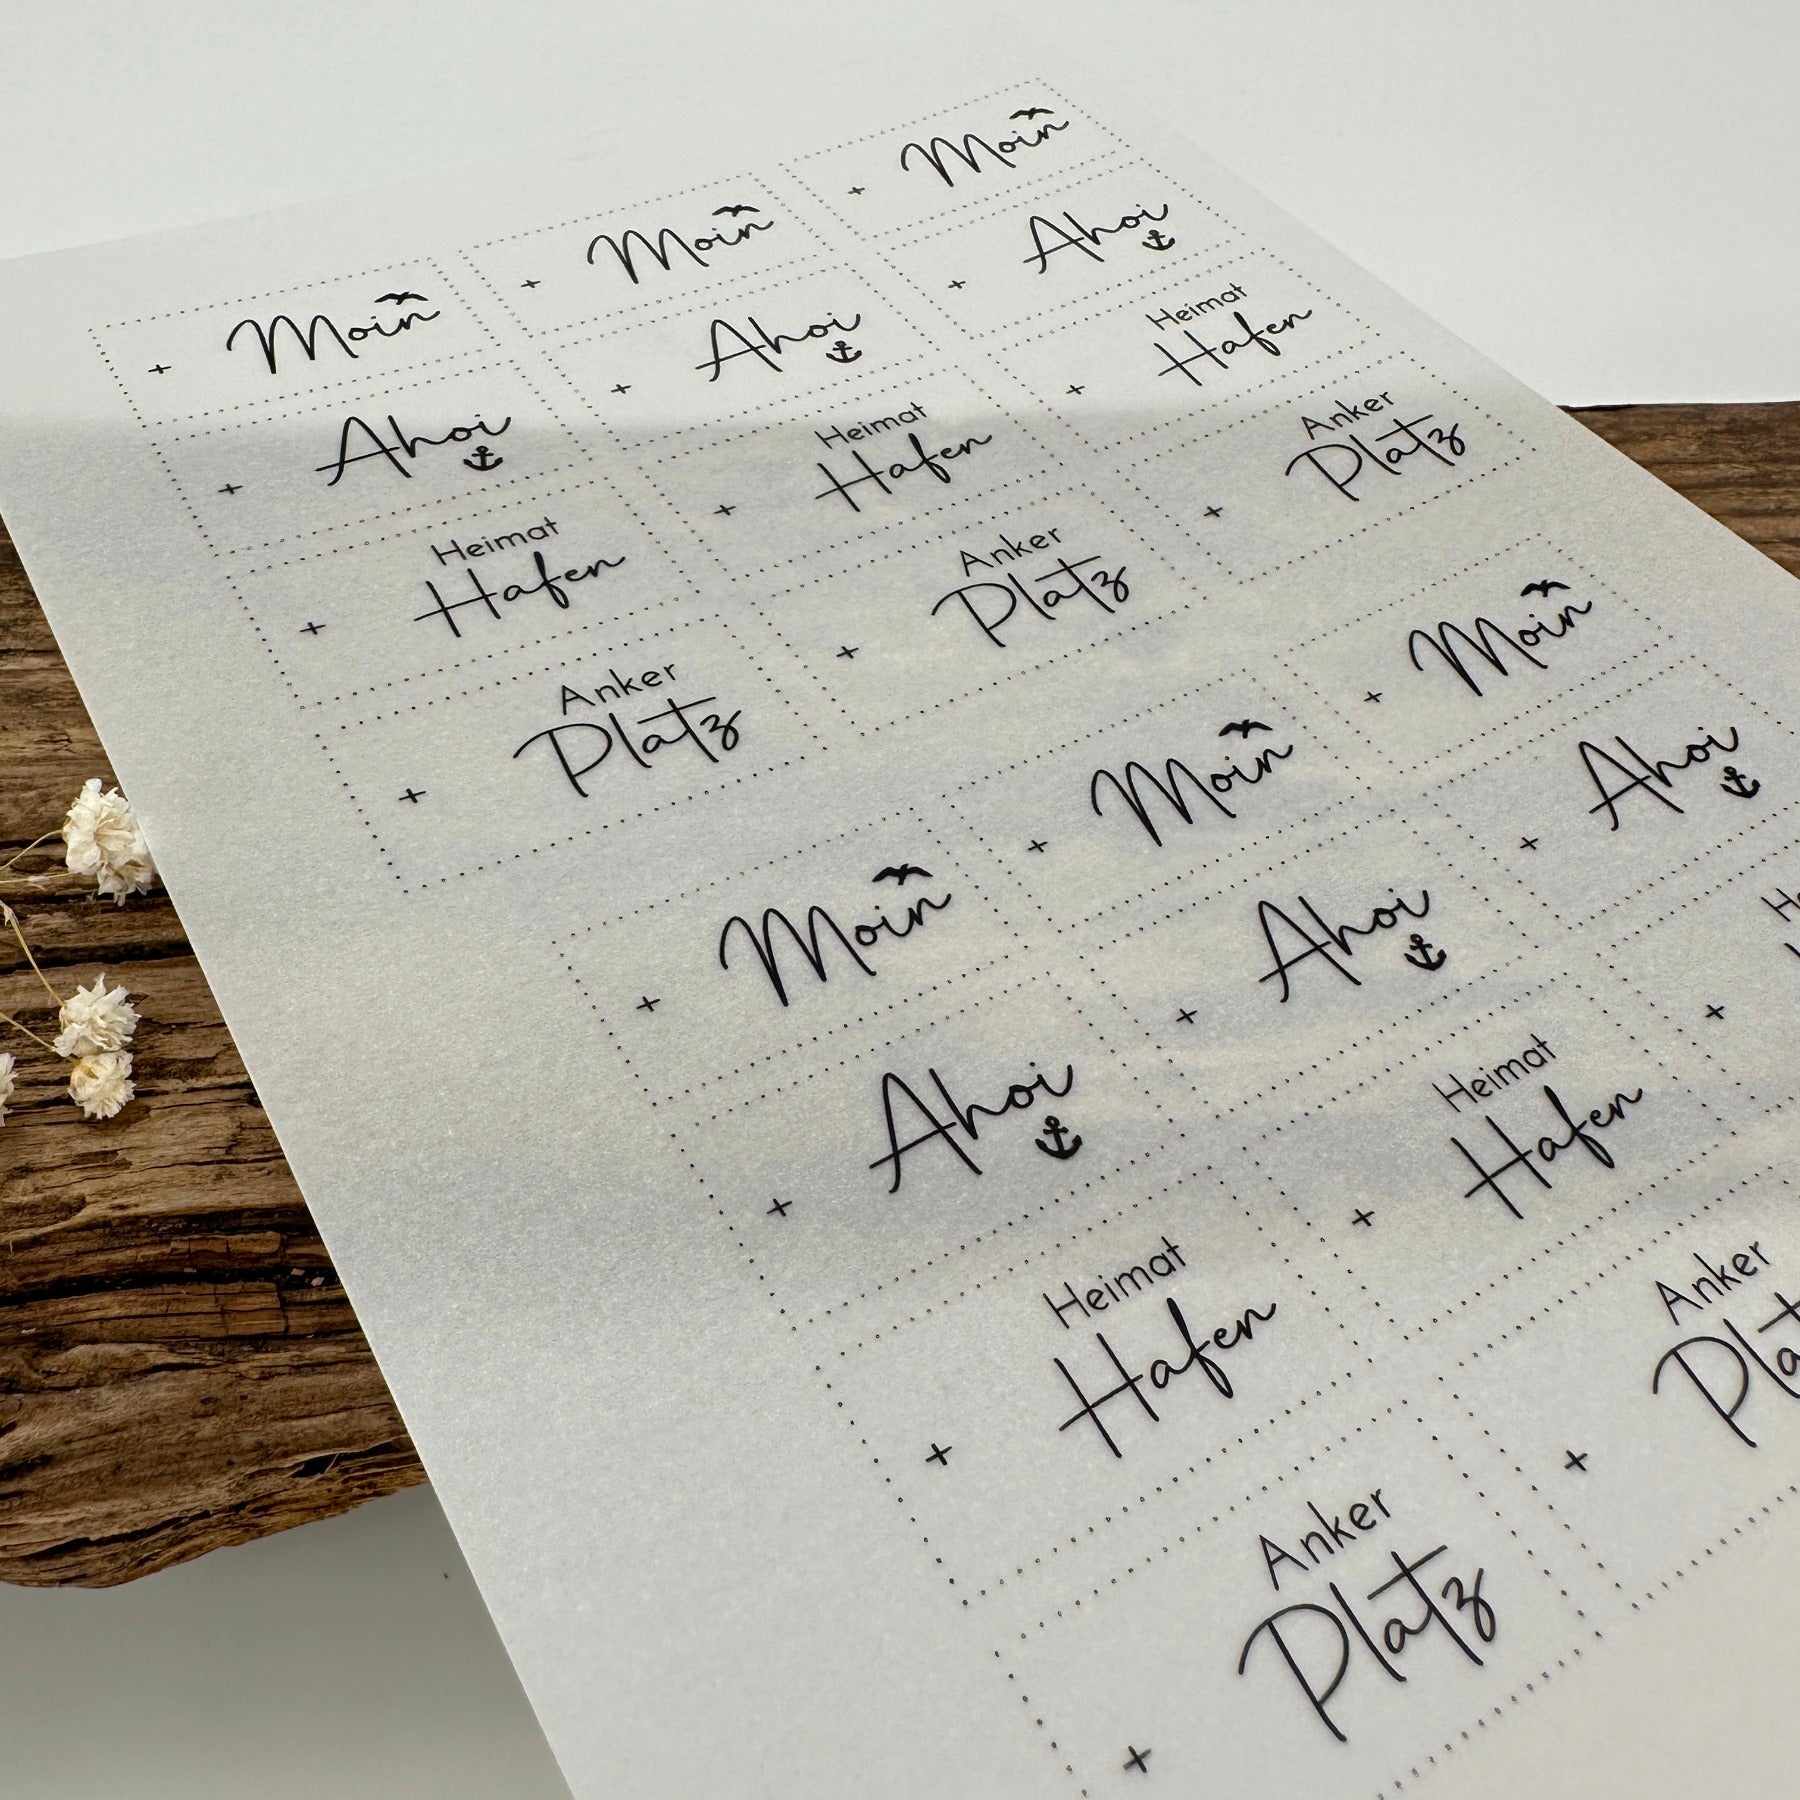 Moin Moin Moin
Ahoi Ahoi Ahoi
Heimat Heimat Heimat
Hafen Hafen Hafen
Anker Anker Anker
Platz Platz Platz
Moin Moin Moin
Ahoi Ahoi Ahoi
Heimat Heimat
Hafen Hafen
Anker Anker
Platz